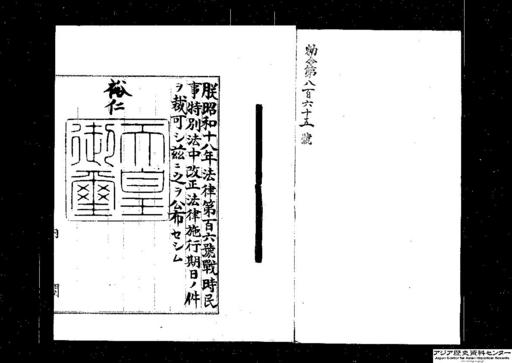 勅令第八百六十五號
朕昭和十八年法律第百六號戰時民
事特別法中改正法律施行期日ノ件
ヲ裁可シ茲ニ之ヲ公布セシム
裕仁
天皇
御璽
内閣
アジア歴史資料センター
Japan Center for Asian Historical Records